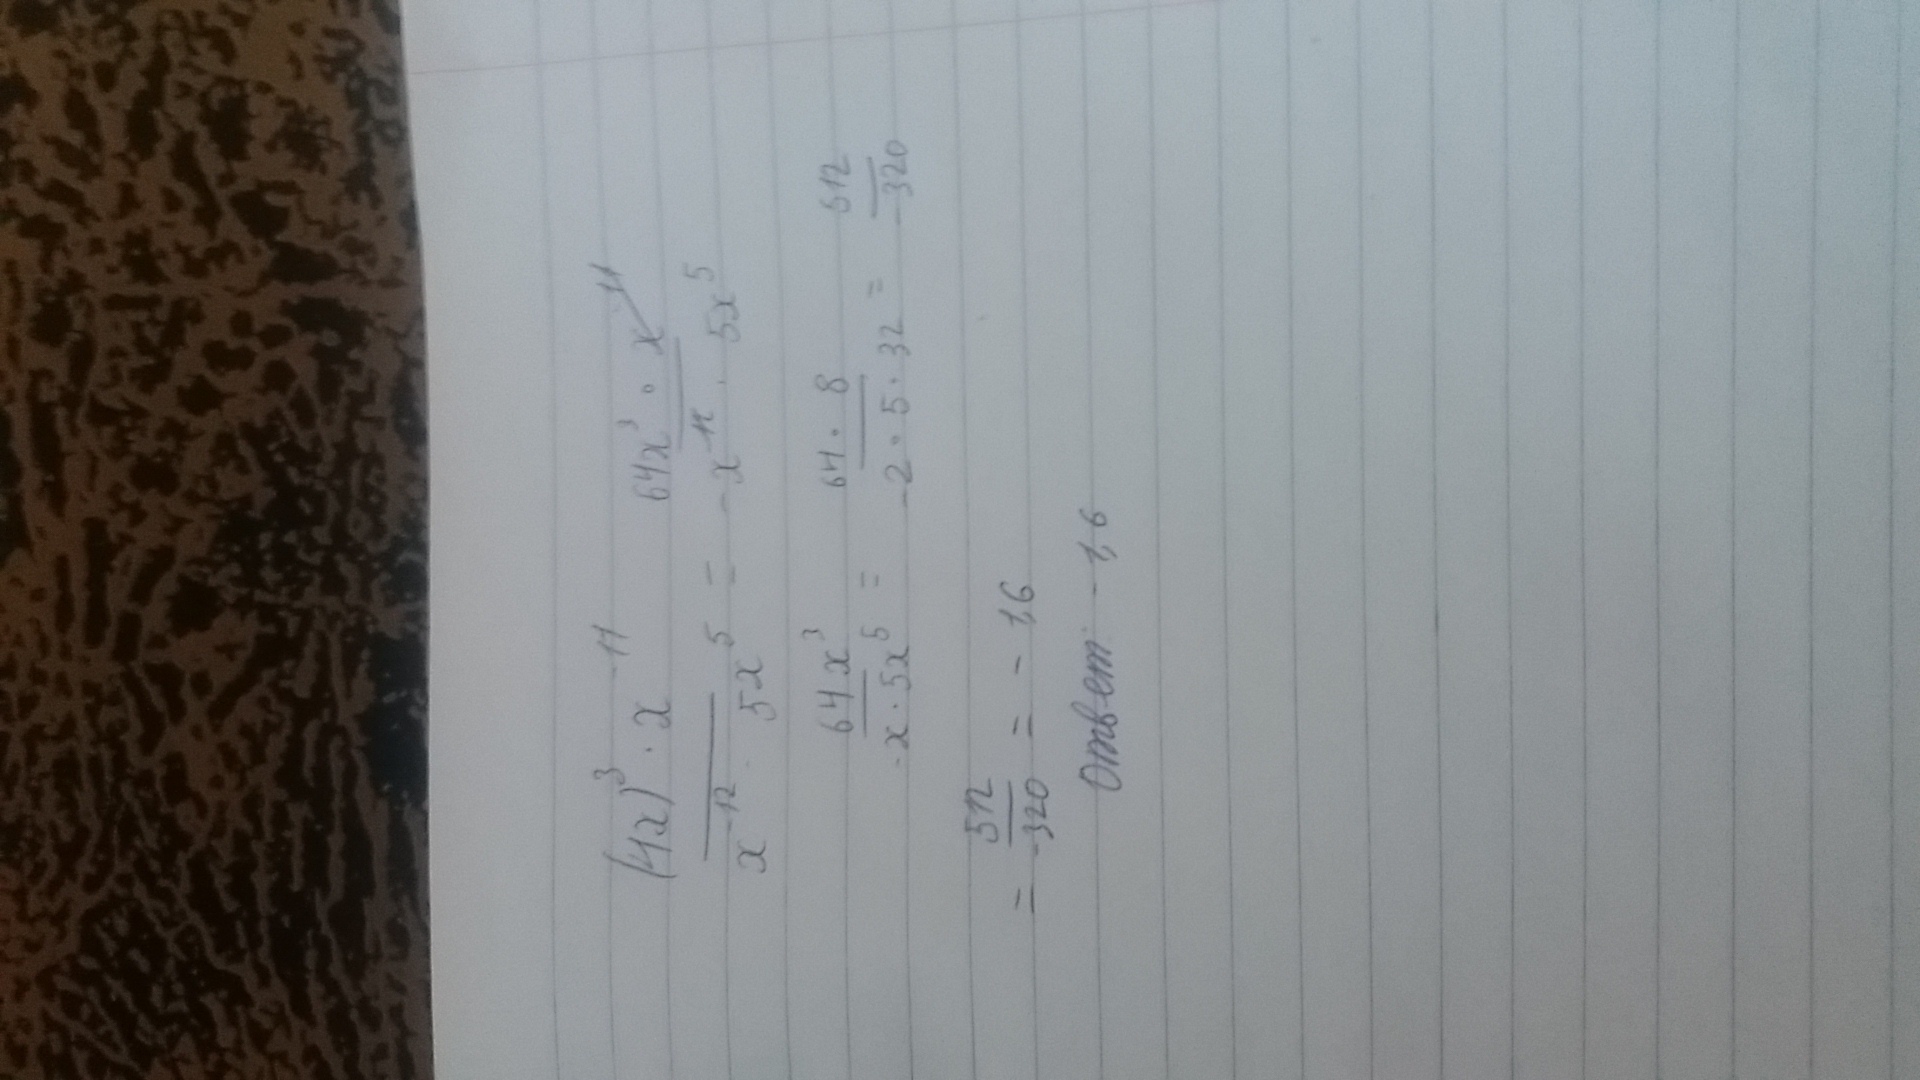 (4x)³ · x⁻¹¹ / x⁻¹² · 5x⁵ = 64x³ · x⁻¹¹ / -x⁻¹² · 5x⁵
64x³ / -x · 5x⁵ = 64 · 8 / -2 · 5 · 32 = 512 / -320
= 512 / -320 = - 1,6
Ответ: -1,6